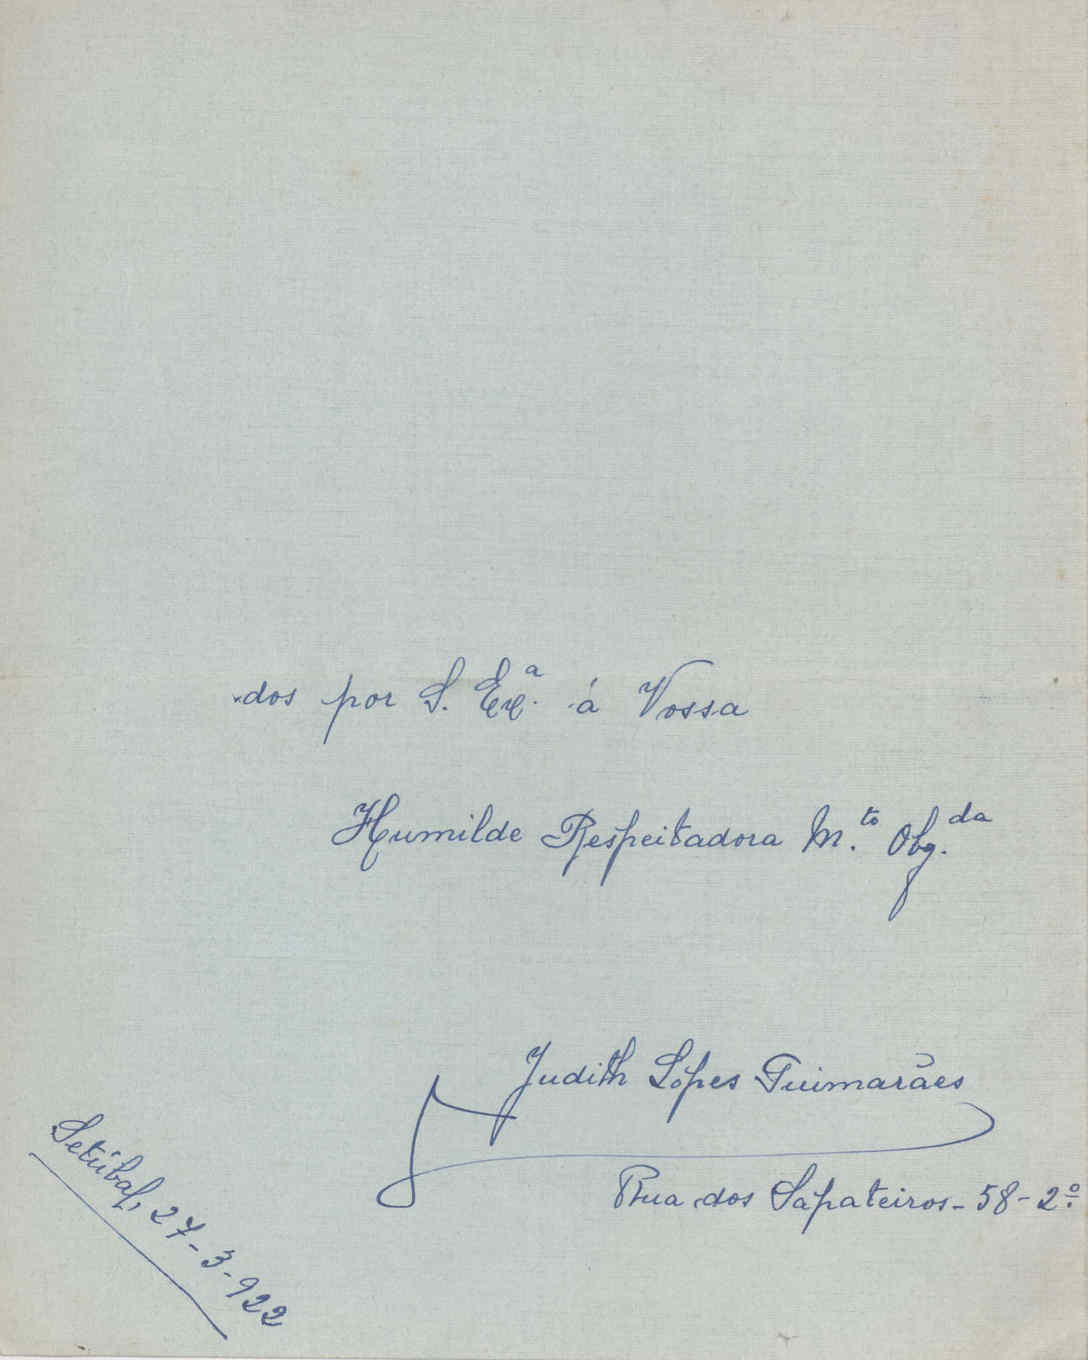 dos por S. Exª. á Vossa
Humilde Respeitadora M.to Obg.da
Judith Lopes Guimarães
Rua dos Sapateiros - 58 - 2º
Setúbal, 27-3-922